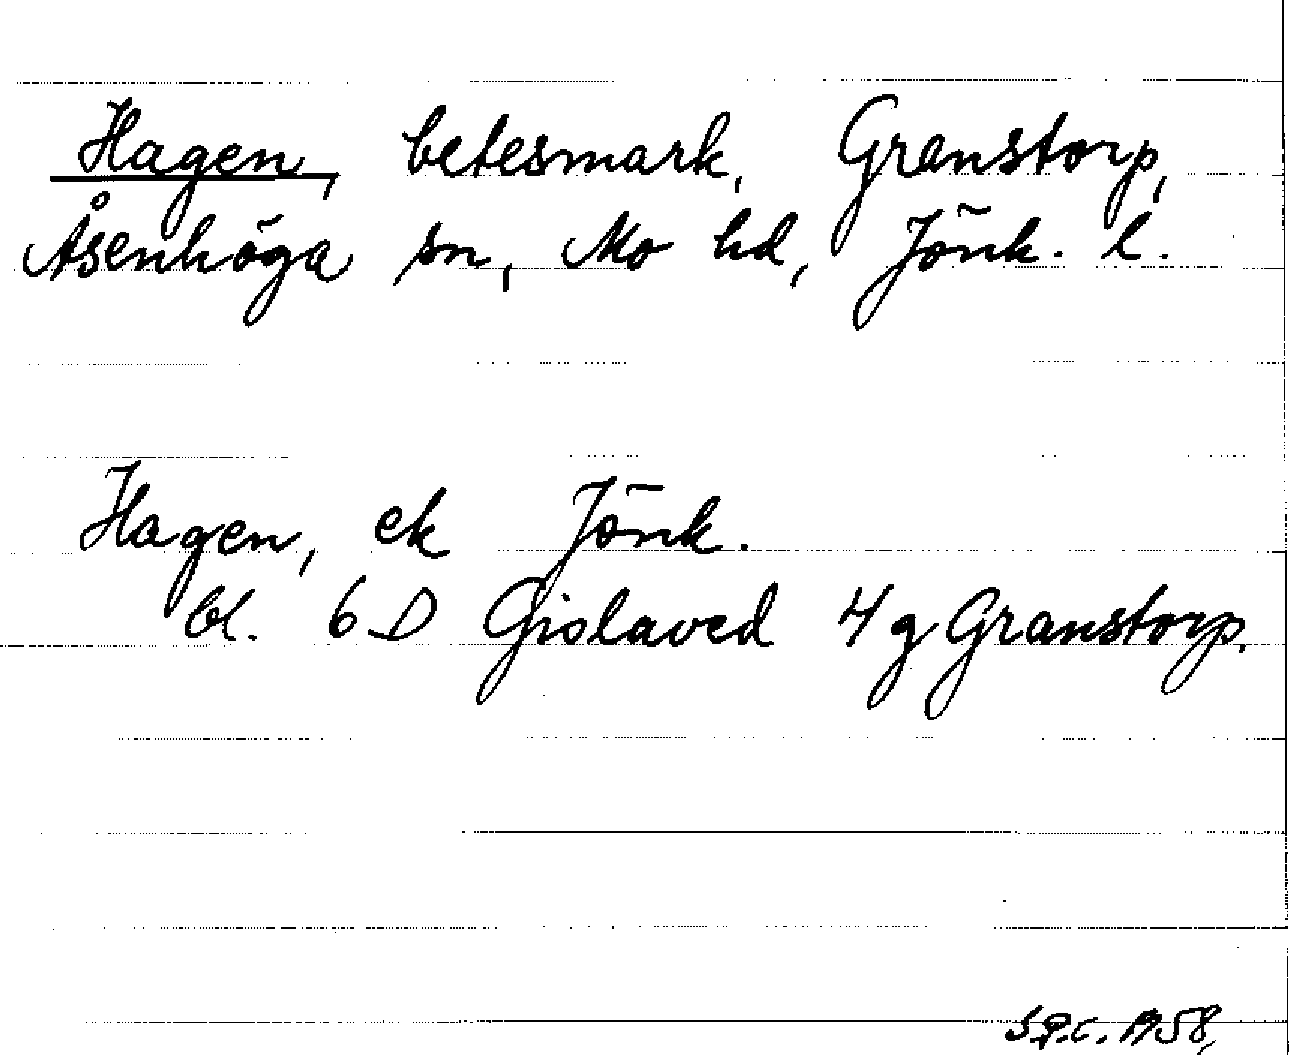 Hagen, betesmark, Granstorp,
Åsenhöga sn, Mo hd, Jönk. l.
Hagen, ek Jönk.
bl. 6D Gislaved 4g Granstorp.
1958,